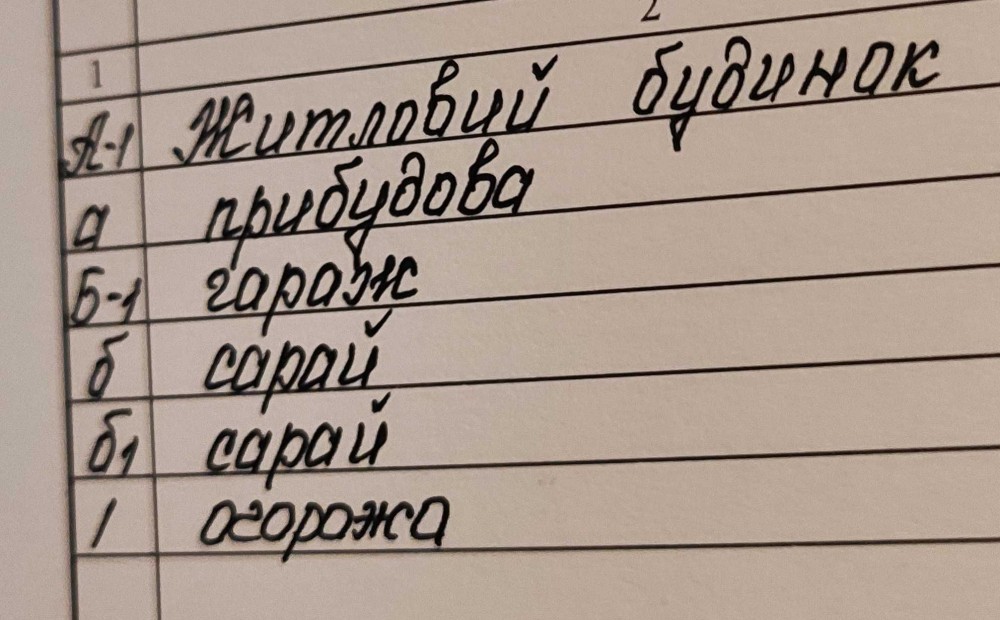 1 2
А-1 Житловий будинок
а прибудова
Б-1 гараж
б сарай
б1 сарай
1 огорожа